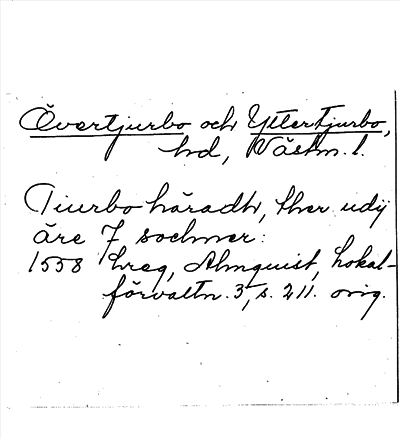 Övertjurbo och Yttertjurbo,
hd, Västm. l.
Tiurbo häradh, ther udij
äre 7 sochner:
1558 hreg, Almquist, Lokal-
förvaltn. 3, s. 211. orig.